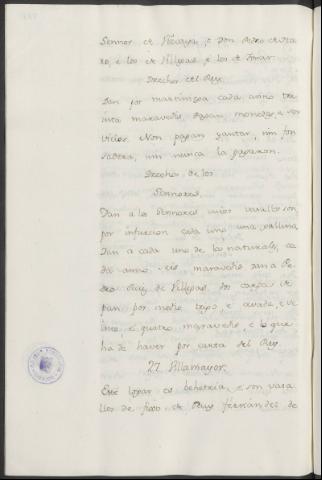 Sennor de Vizcaya, e Don Pedro
ro, e los de Villegas, e los de Tovar.
Derechos del Rey.
Dan por martiniega cada anno tre
inta maravedis, e pagan monedas, e ser
vicios. Non pagan yantar, nin fon
sadera, nin nunca la pagaron.
Derechos de los
Sennores.
Dan a los Sennores cuios vasallos son,
por infurcion cada uno una gallina,
Dan a cada uno de los naturales, ca
da anno seis maravedis. Dan a Pe
dro Ruiz de Villegas, dos cargas de
pan por medio trigo, e cevada, e vi
no, e quatro maravedis e lo que
ha de haver por carta del Rey.
27 Villamayor.
Este logar es behetria, e son vasa
llos de fijos de Ruy Fernandes de